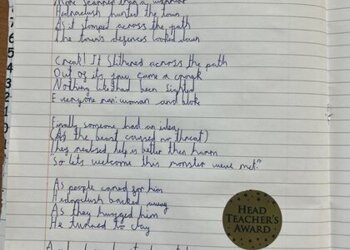 More scared than a warrior
hunted the town
As it stomped across the path
The town's defences looked down

Creak! It slithered across the path
Out of its jaws came a croak
Nothing like had been sighted
Everyone man: woman and bloke

Finally someone had an idea
(As the beast caused no threat)
They realised help is better then harm
So lets welcome this monster weve met"

As people cared for him
backed away
As they hugged him
He turned to clay

HEAD
TEACHER'S
AWARD
6
5
4
3
2
1
0